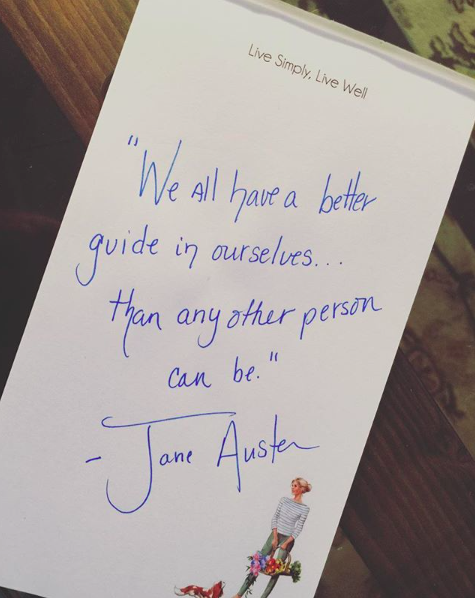 Live Simply, Live Well
"We All have a better
guide in ourselves...
than any other person
can be."
- Jane Austen